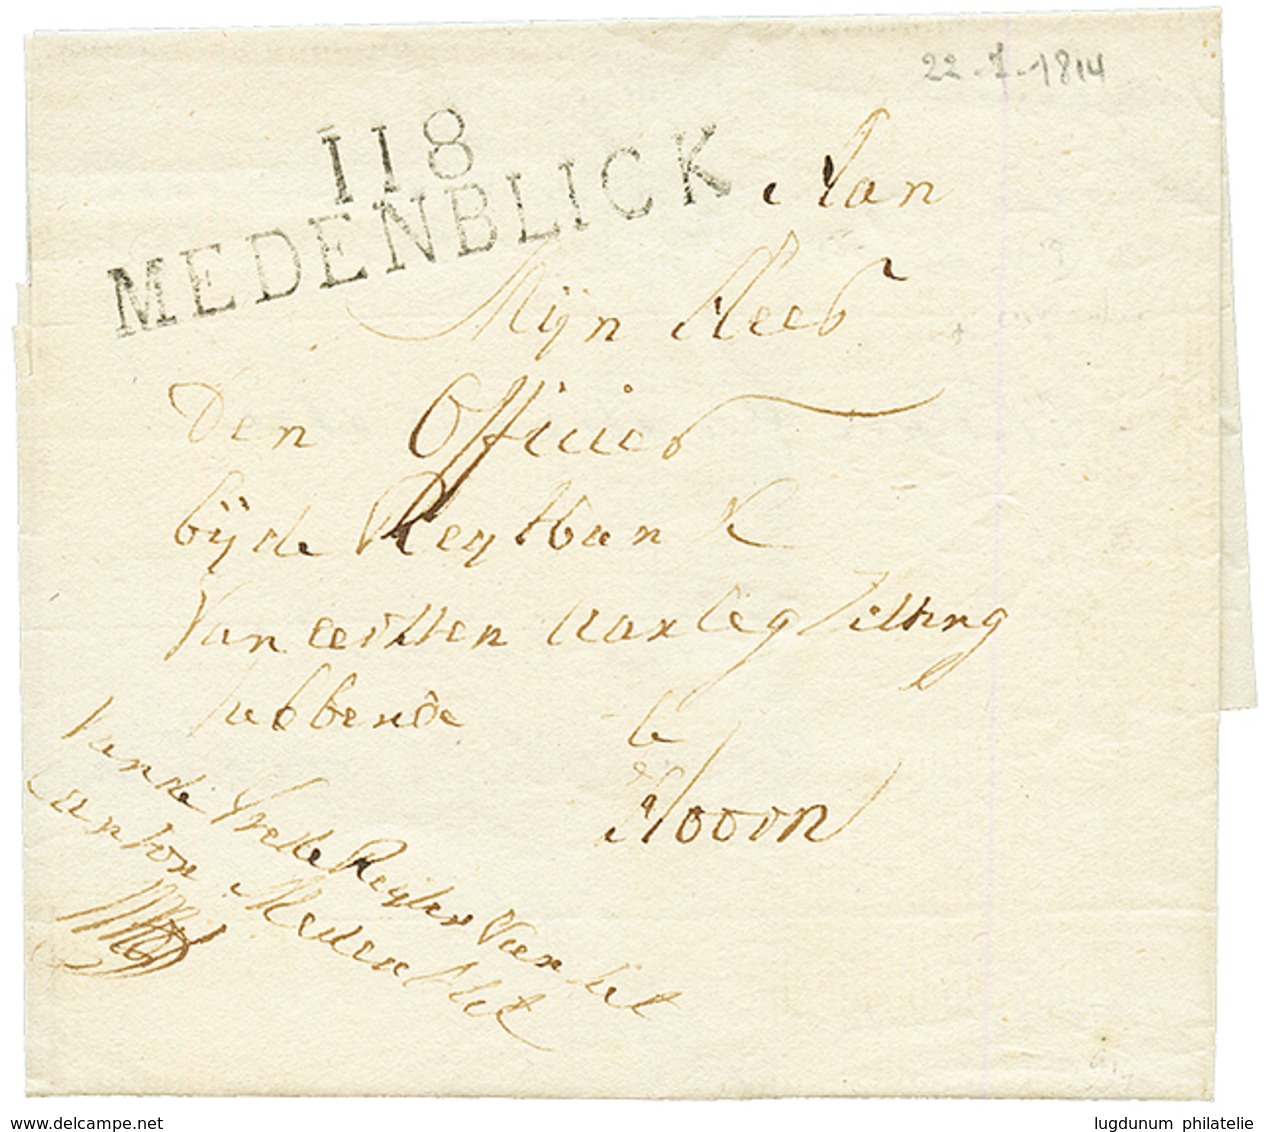 22-7-1814
118
MEDENBLICK
Aan
Mijn Heer
Den Officier
bijde Regtbank
Van eersten Aanleg Zitting
hebbende te
Hoorn
Van de Vrede Regter Van het
Canton Medenblik
www.delcampe.net
lugdunum philatelie